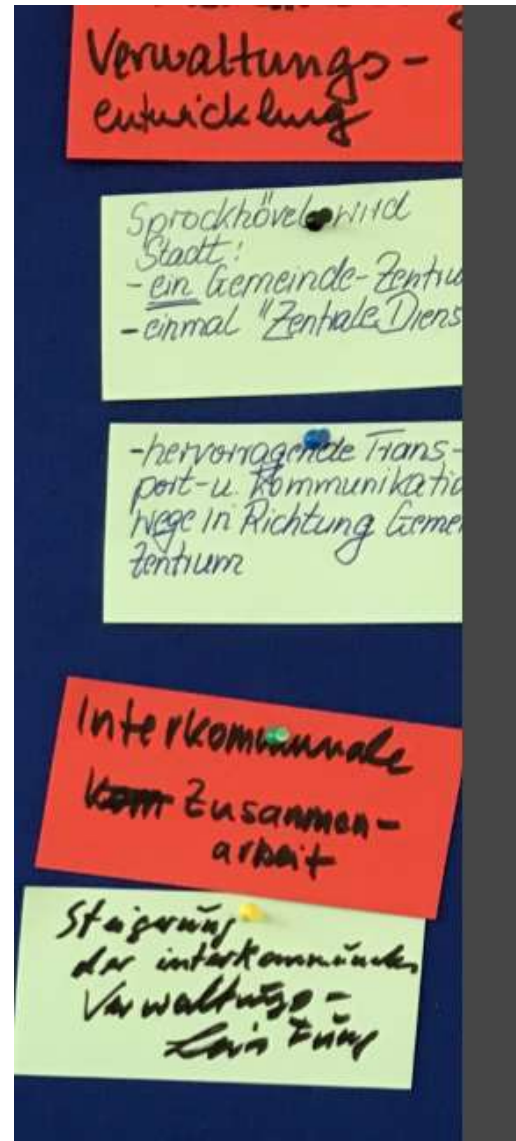 Verwaltungs-
entwicklung
Sprockhövel wird
Stadt:
- ein Gemeinde-Zentru
- einmal "Zentrale Diens
- hervorragende Trans-
port-u. Kommunikatio
wege in Richtung Gemei
zentrum
Interkommunale
Zusammen-
arbeit
Steigerung
der interkommunalen
Verwaltungs-